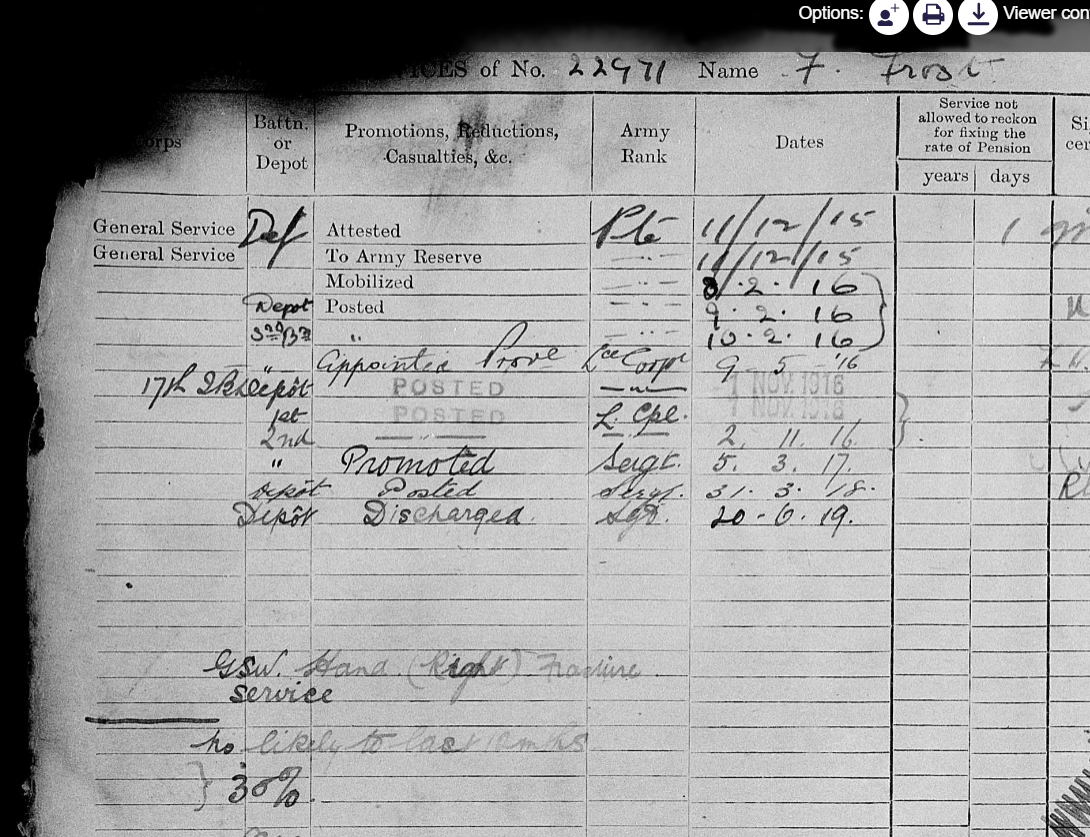 Options: Viewer con
ICES of No. 22971 Name F. Frost
orps Battn. or Depot Promotions, Reductions, Casualties, &c. Army Rank Dates Service not allowed to reckon for fixing the rate of Pension years days Si cer
General Service Attested Pte 11/12/15 1
General Service To Army Reserve —..— 11/12/15
Mobilized —..— 8.2.16
Depot Posted —..— 9.2.16
" —..— 10.2.16
" Appointed 9 5 '16
17th Depôt POSTED —"— 1 NOV. 1916
1st POSTED L. Cpl. 1 NOV. 1916
2nd —"— —"— 2. 11. 16.
" Promoted Sergt. 5. 3. 17.
Depôt Posted Sergt. 31. 3. 18.
Depôt Discharged. Sgt. 20-6.19.
GSW. Hand (Right) Fracture
Service
likely to last 12 mths
} 30%